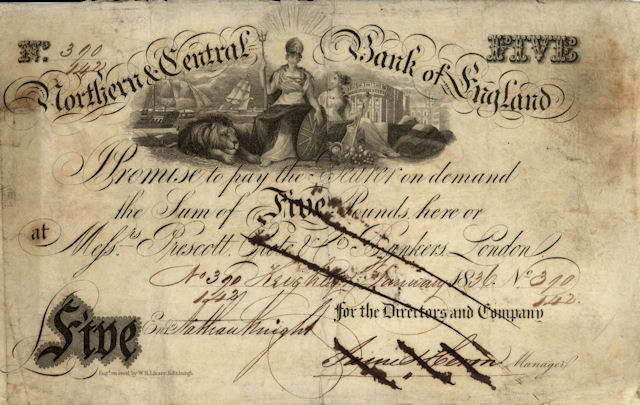 No. 390 FIVE
442
Northern & Central Bank of England
I Promise to pay the Bearer on demand
the Sum of Five Pounds, here or
at Messrs. Prescott, Grote & Co Bankers London.
No 390 Keighley January 1836 No 390
442 442
For the Directors and Company
Five Entd. Nathan Knight
Manager
Engd. on steel by W.H. Lizars Edinburgh